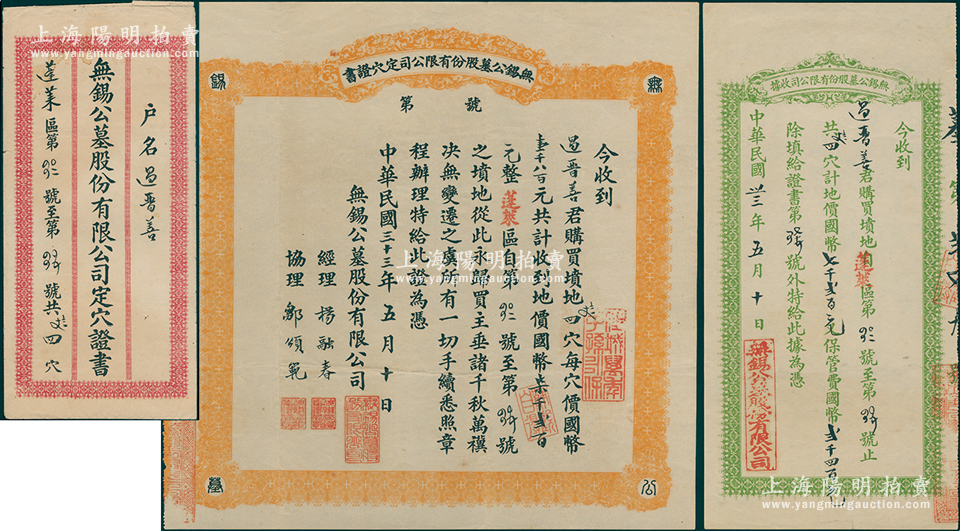 上海陽明拍賣
www.yangmingauction.com
戶名 過晋善
無錫公墓股份有限公司定穴證書
蓬萊區第 號至第 號共 四穴
上海陽明拍賣
www.yangmingauction.com
無錫公墓股份有限公司定穴證書
無
錫
公
墓
第 號
今收到
過晋善君購買墳地四穴每穴價國幣
壹千八百元共計收到地價國幣柒千貳百
元整蓬萊區自第 號至第 號
之墳地從此永歸買主垂諸千秋萬禩
決無變遷之虞所有一切手續悉照章
程辦理特給此證為憑
中華民國三十三年五月十日
無錫公墓股份有限公司
經理 楊融春
協理 鄒頌範
無錫公墓股份有限公司收據
今收到
過晋善君購買墳地自蓬萊區第 號至第 號止
共四穴計地價國幣七千貳百元保管費國幣貳千四百
除填給證書第 號外特給此據為憑
中華民國卅三年五月十日
無錫公墓股份有限公司
上海陽明拍賣
www.yangmingauction.com